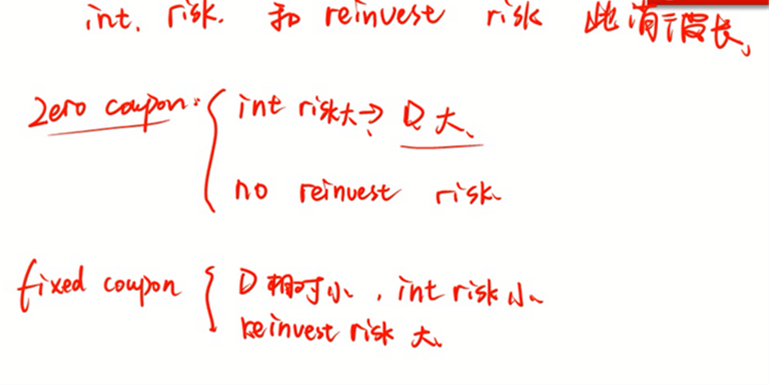 int. risk. 和 reinvest risk 此消彼长、
Zero coupon: int risk大→ D 大、
no reinvest risk.
fixed coupon D 相对小, int risk 小、
reinvest risk 大、